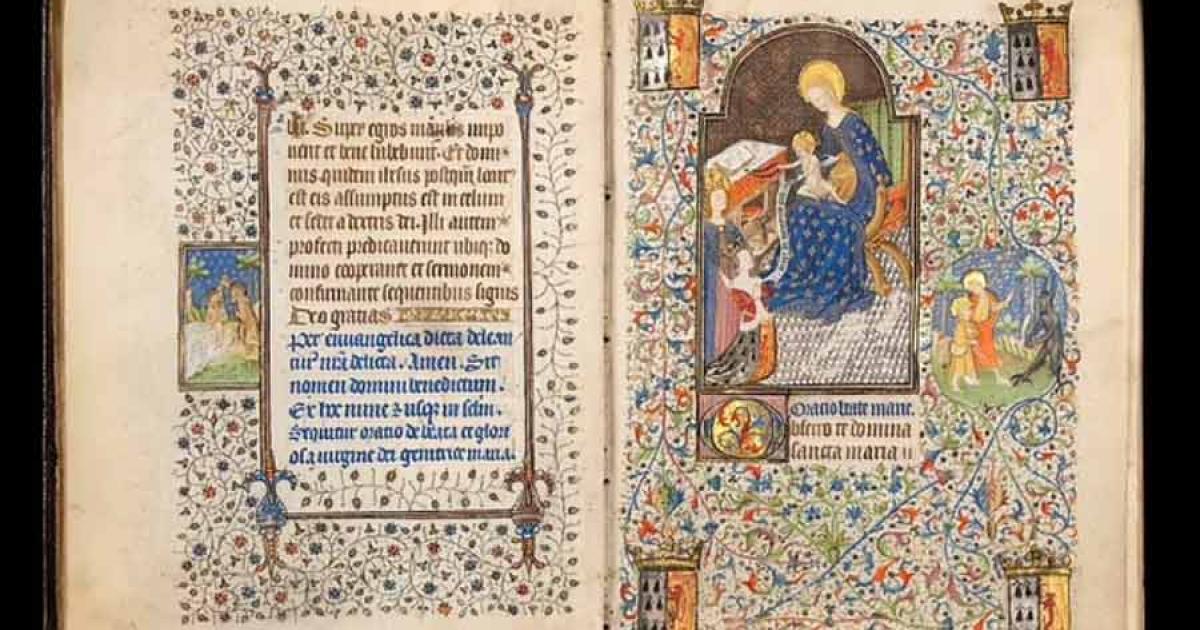 Super egros manus impo
nent et bene habebunt. Et domi
nus quidem ihesus postquam locut
est eis assumptus est in celum
et sedet a dextris dei. Illi autem
profecti predicauerunt ubiq; do
mino cooperante et sermonem
confirmante sequentibus signis
Deo gratias
Per euuangelica dicta delean
tur nra delicta. Amen. Sit
nomen domini benedictum.
Ex hoc nunc & usq; in sclm.
Sequitur oratio de beata et glori
osa uirgine dei genitrice maria.
Oratio beate marie.
bsecro te domina
sancta maria